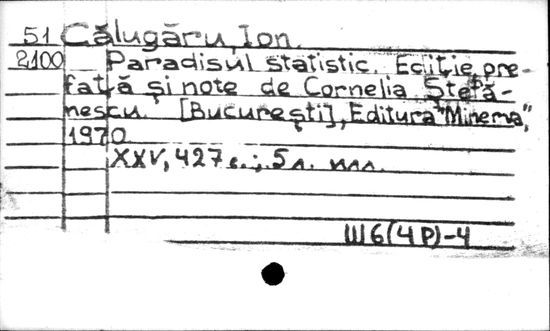 51 Călugăru, Ion.
2100 Paradisul statistic. Ediţie, pre-
faţă şi note de Cornelia Ştefă-
nescu. [Bucureşti], Editura "Minerva",
1970
XXV, 427 с.; 5 л. илл.
Ш6(4Р)-4